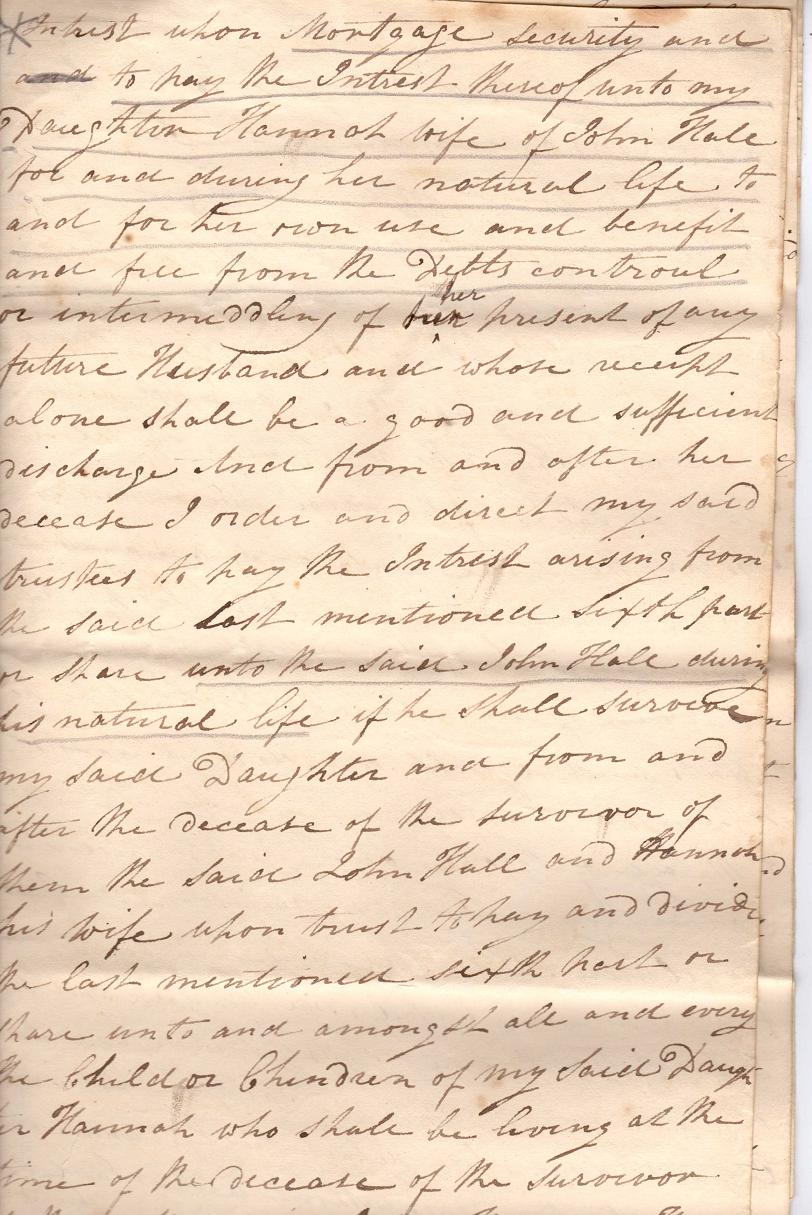 Intrest upon Mortgage security and
and to pay the Intrest thereof unto my
Daughter Hannah wife of John Hall
for and during her natural life to
and for her own use and benefit
and free from the Debts controul
or intermeddling of her present of any
future Husband and whose receipt
alone shall be a good and sufficient
discharge And from and after her
decease I order and direct my said
trustees to pay the Intrest arising from
the said last mentioned sixth part
or share unto the said John Hall during
his natural life if he shall survive
my said Daughter and from and
after the decease of the survivor of
them the said John Hall and Hannah
his wife upon trust to pay and divide
the last mentioned sixth part or
share unto and amongst all and every
the Child or Chindren of my said Daugh
ter Hannah who shall be living at the
time of the decease of the survivor